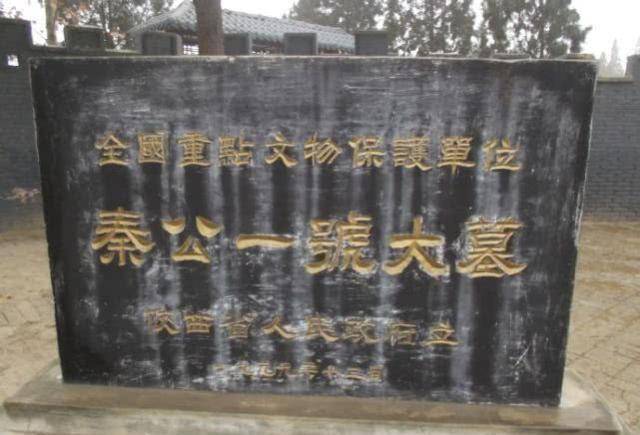 全國重點文物保護單位
秦公一號大墓
陜西省人民政府立